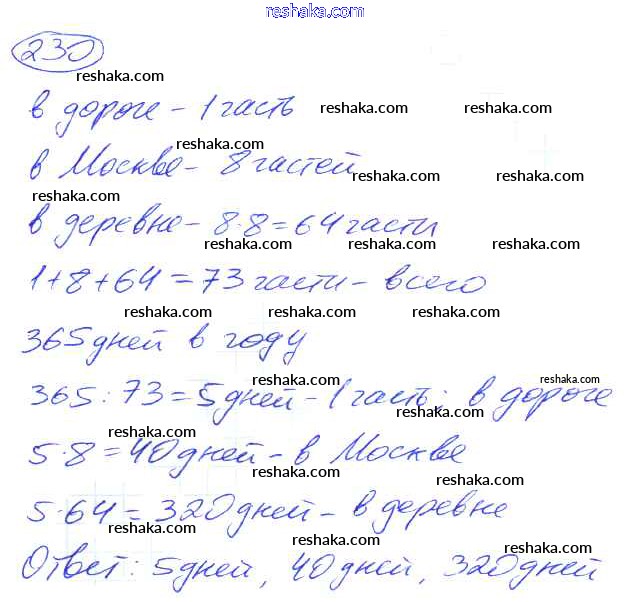 reshaka.com
230
reshaka.com
в дороге - 1 часть reshaka.com reshaka.com
reshaka.com
в Москве - 8 частей reshaka.com reshaka.com
reshaka.com
в деревне - 8·8=64 части
reshaka.com reshaka.com reshaka.com
1+8+64=73 части - всего
reshaka.com reshaka.com reshaka.com
365 дней в году
reshaka.com reshaka.com
365:73=5 дней - 1 часть; в дороге
reshaka.com
reshaka.com
5·8=40 дней - в Москве
reshaka.com reshaka.com
5·64=320 дней - в деревне
reshaka.com reshaka.com
reshaka.com
Ответ: 5 дней, 40 дней, 320 дней
reshaka.com reshaka.com